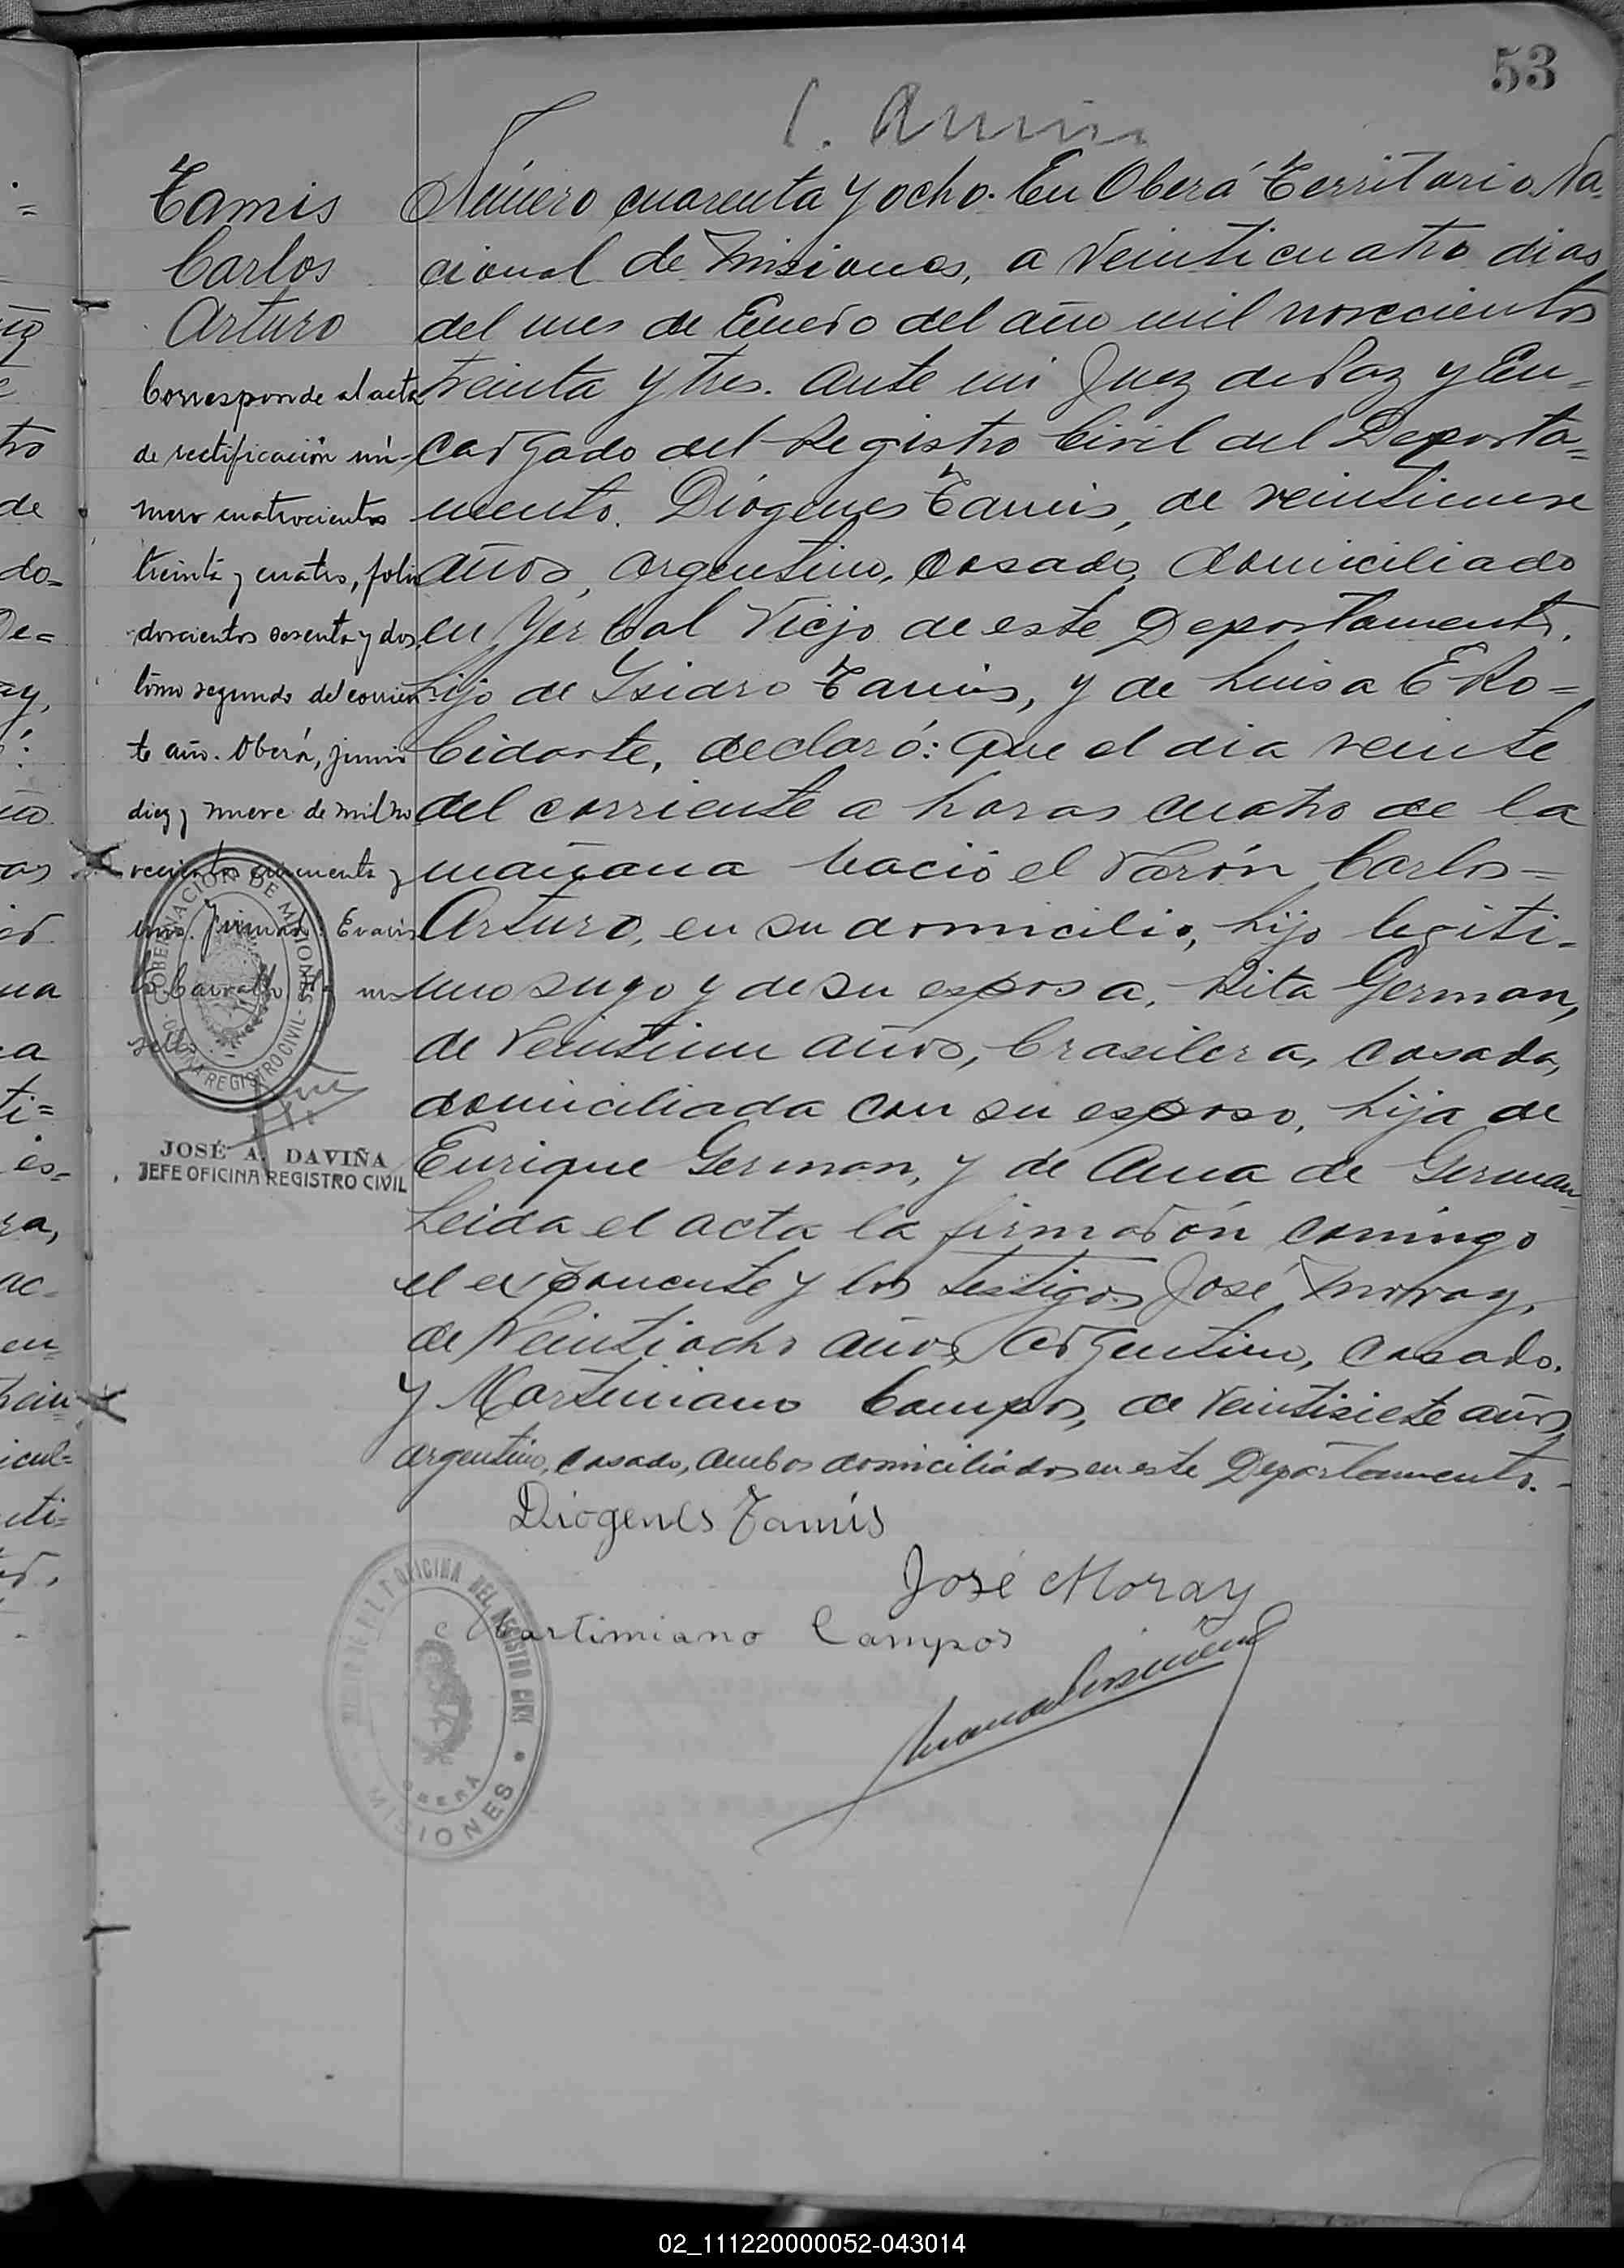 53
Tamis
Carlos
Arturo
Corresponde al acta
de rectificación nú-
mero cuatrocientos
treinta y cuatro, folio
doscientos sesenta y dos,
tomo segundo del corrien-
te año. Oberá, junio
diez y nueve de mil no-
vecientos cincuenta y
uno. Firmado:
sello
GOBERNACION DE MISIONES
OFICINA REGISTRO CIVIL
JOSÉ A. DAVIÑA
JEFE OFICINA REGISTRO CIVIL
Número cuarenta y ocho. En Oberá Territorio Na-
cional de Misiones, a veinticuatro dias
del mes de Enero del año mil novecientos
treinta y tres. Ante mi Juez de Paz y En-
cargado del Registro Civil del Departa=
mento. Diógenes Tamis, de veintinueve
años, argentino, casado, domiciliado
en Yerbal Viejo de este Departamento.
hijo de Isidro Tamis, y de Luisa E Ro=
bidarte, declaró: Que el dia veinte
del corriente a horas cuatro de la
mañana nació el varón Carlos=
Arturo, en su domicilio, hijo legiti-
mo suyo y de su esposa, Rita German,
de veintiun años, brasilera, casada,
domiciliada con su esposo, hija de
Enrique German, y de Ana de German
Leida el acta la firmarón conmigo
el exponente y los testigos José Moray,
de veintiocho años, argentino, casado.
y Martimiano Campos, de veintisiete años,
argentino, casado, ambos domiciliados en este Departamento.-
Diogenes Tamis
José Moray
Martimiano Campos
OFICINA DEL REGISTRO CIVIL
OBERÁ
MISIONES
02_111220000052-043014